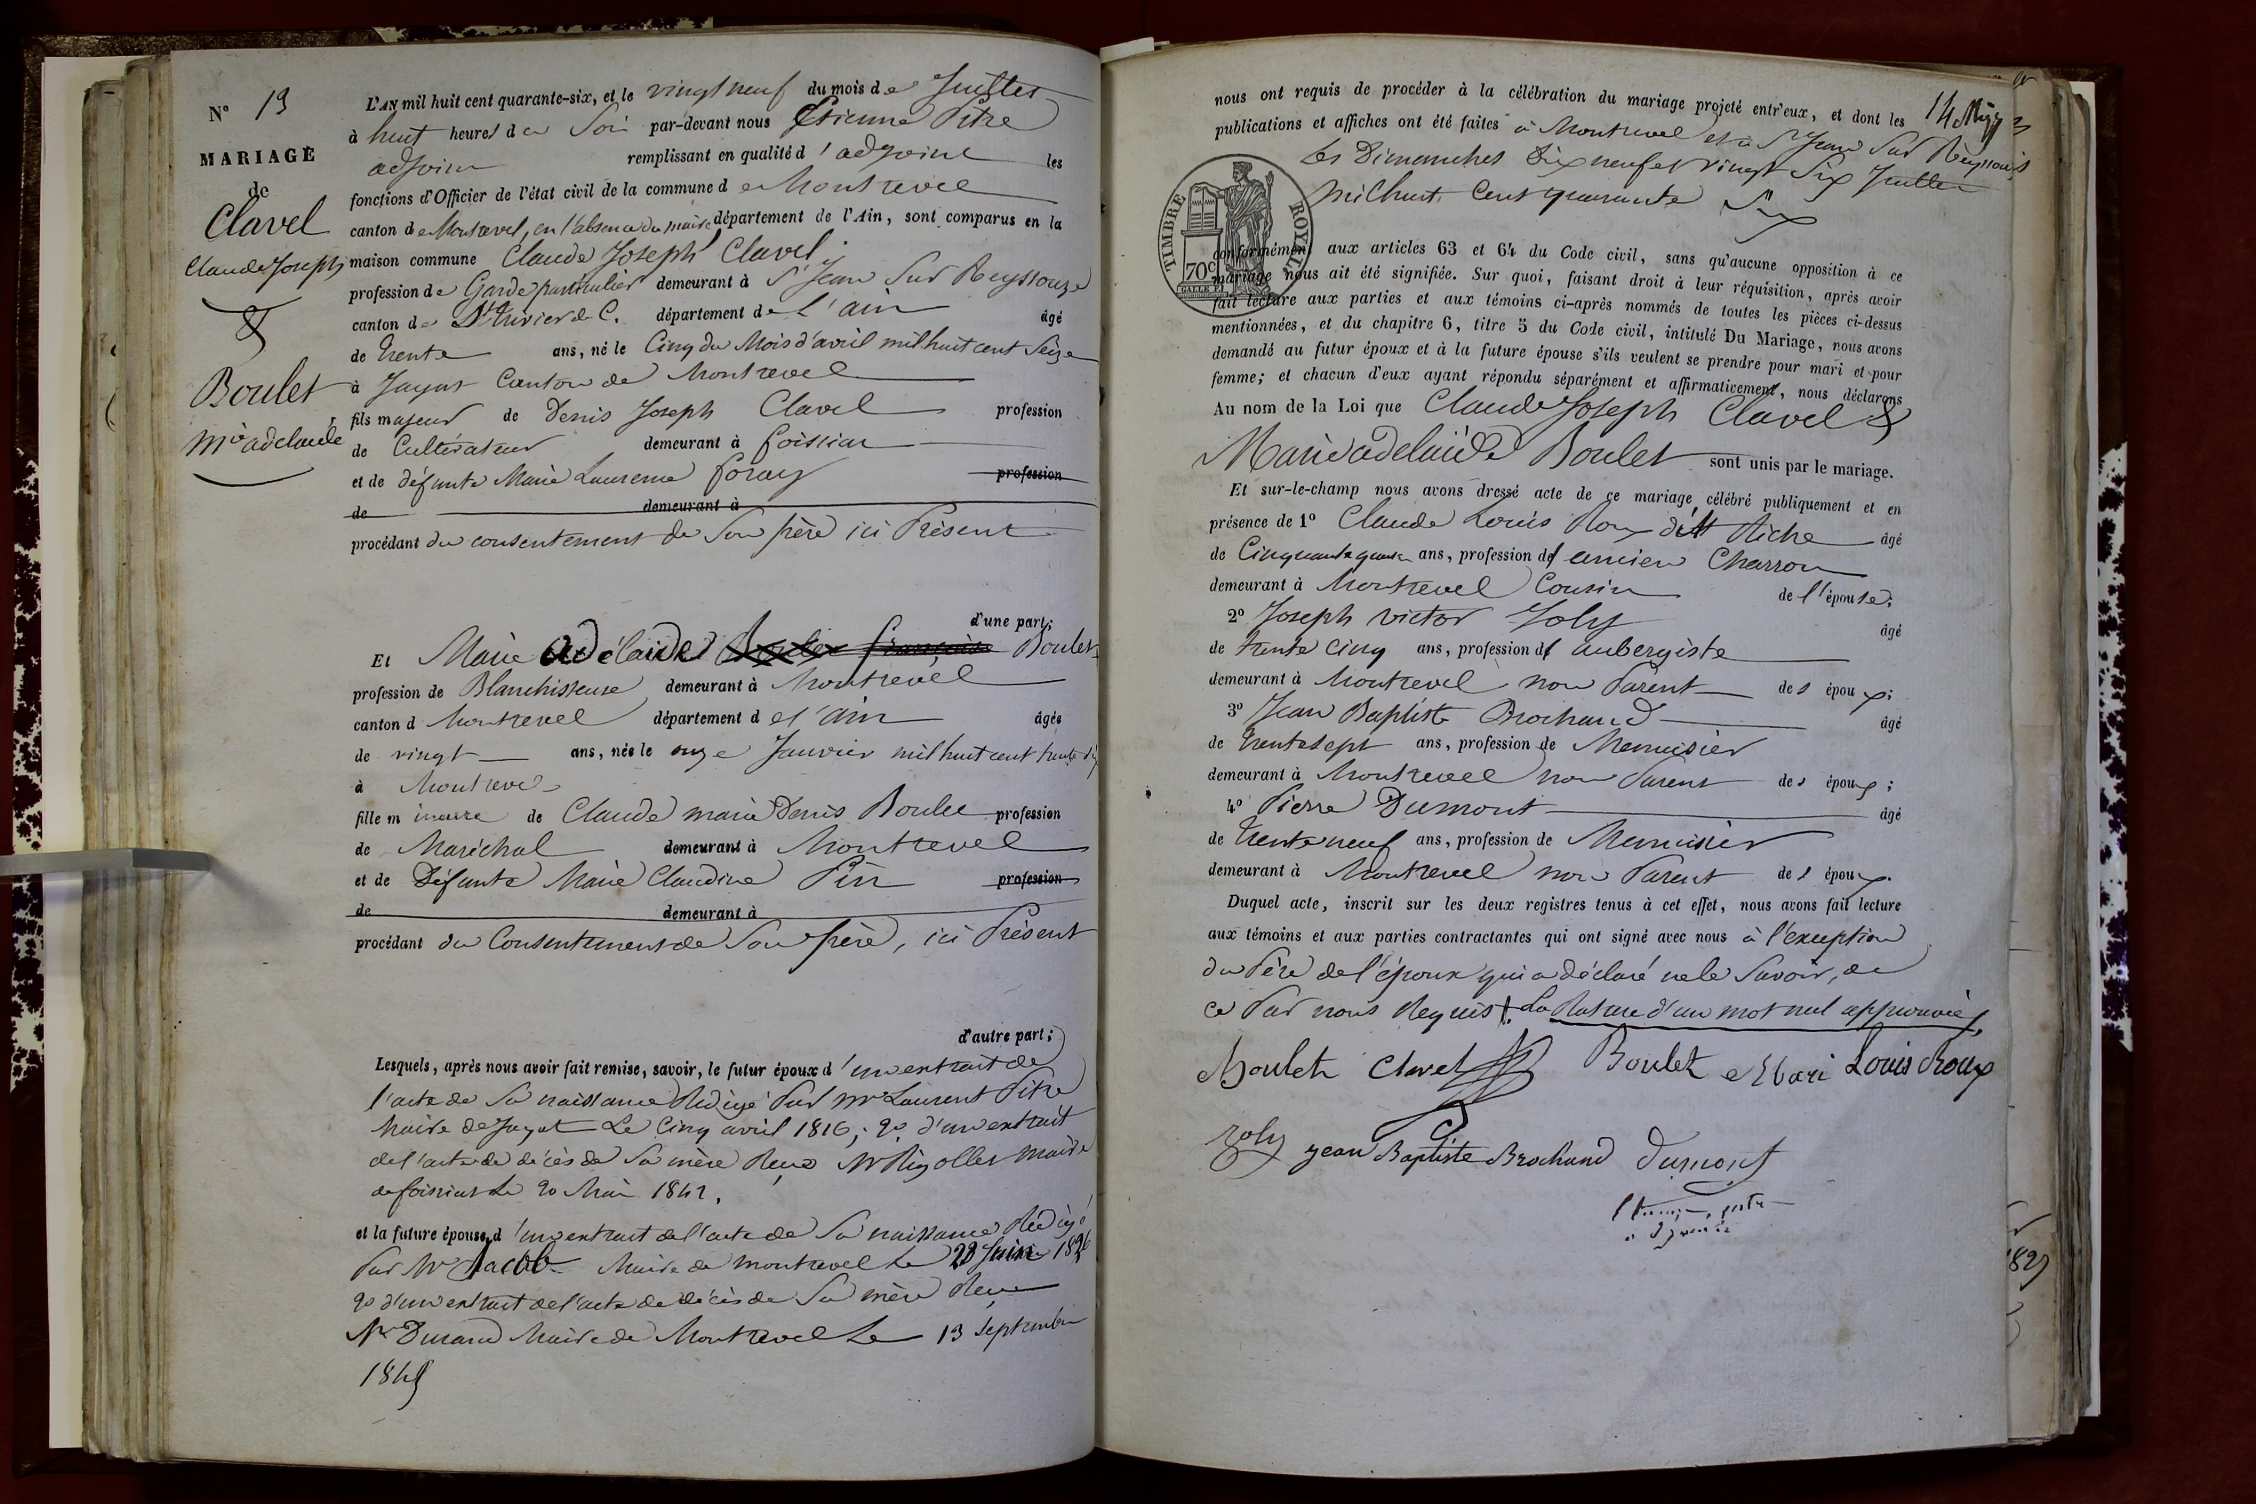 N° 13
MARIAGE
de
Clavel
Claude Joseph
&
Boulet
Mie adelaide
L'AN mil huit cent quarante-six, et le vingt neuf du mois de Juillet
à huit heures du Soir par-devant nous Etienne Pitre
adjoint remplissant en qualité d'adjoint les
fonctions d'Officier de l'état civil de la commune de Montrevel
canton de Montrevel, en l'absence du maire département de l'Ain, sont comparus en la
maison commune Claude Joseph Clavel
profession de Garde particulier demeurant à St Jean Sur Reyssouze
canton de St Trivier de C. département de L'ain âgé
de trente ans, né le Cinq du Mois d'avril mil huit cent Seize
à Jayat Canton de Montrevel
fils majeur de Denis Joseph Clavel profession
de Cultivateur demeurant à foissiat
et de défunte Marie Laurence foray profession
de demeurant à
procédant du consentement de Son père ici Présent
d'une part;
Et Marie adélaide Boulet
profession de Blanchisseuse demeurant à Montrevel
canton d Montrevel département de l'ain âgée
de vingt ans, née le onze Janvier mil huit cent
à Montrevel
fille mineure de Claude marie Denis Boulet profession
de Maréchal demeurant à Montrevel
et de Défunte Marie Claudine Pin profession
de demeurant à
procédant du Consentement de Son père, ici Présent
d'autre part;
Lesquels, après nous avoir fait remise, savoir, le futur époux d'un extrait de
l'acte de Sa naissance Rédigé Par Mr Laurent Pitre
Maire de Jayat Le Cinq avril 1816; 2° d'un extrait
de l'acte de décès de Sa mère Reçu Mr Rigollet Maire
de foissiat Le 20 Mai 1842.
et la future épouse, d'un extrait de l'acte de Sa naissance Rédigé
Par Mr Jacob Maire de Montrevel Le 28 Juin 1826
2° d'un extrait de l'acte de décès de Sa mère Reçu
Mr Durand Maire de Montrevel Le 13 Septembre
1845
14
nous ont requis de procéder à la célébration du mariage projeté entr'eux, et dont les
publications et affiches ont été faites à Montrevel et à St Jean Sur Reyssouze
Les Dimanches Dix neuf et vingt Six Juillet
mil huit Cent quarante Six
TIMBRE ROYAL
70c
conformément aux articles 63 et 64 du Code civil, sans qu'aucune opposition à ce
mariage nous ait été signifiée. Sur quoi, faisant droit à leur réquisition, après avoir
fait lecture aux parties et aux témoins ci-après nommés de toutes les pièces ci-dessus
mentionnées, et du chapitre 6, titre 5 du Code civil, intitulé Du Mariage, nous avons
demandé au futur époux et à la future épouse s'ils veulent se prendre pour mari et pour
femme; et chacun d'eux ayant répondu séparément et affirmativement, nous déclarons
Au nom de la Loi que Claude Joseph Clavel &
Marie adelaïde Boulet sont unis par le mariage.
Et sur-le-champ nous avons dressé acte de ce mariage célébré publiquement et en
présence de 1° Claude Louis Roux dit Riche âgé
de Cinquante quatre ans, profession d'ancien Charron
demeurant à Montrevel Cousin de l'épouse;
2° Joseph victor Joly âgé
de trente cinq ans, profession d'aubergiste
demeurant à Montrevel non Parent des époux;
3° Jean Baptiste Brochand âgé
de trente sept ans, profession de Menuisier
demeurant à Montrevel non Parent des époux;
4° Pierre Dumont âgé
de trente neuf ans, profession de Menuisier
demeurant à Montrevel non Parent des époux.
Duquel acte, inscrit sur les deux registres tenus à cet effet, nous avons fait lecture
aux témoins et aux parties contractantes qui ont signé avec nous à l'exception
du Père de l'époux qui a déclaré ne le Savoir, de
ce Par nous Requis. La Rature d'un mot nul approuvée.
Boulet Clavel Boulet Louis Roux
Joly jean Baptiste Brochand Dumont